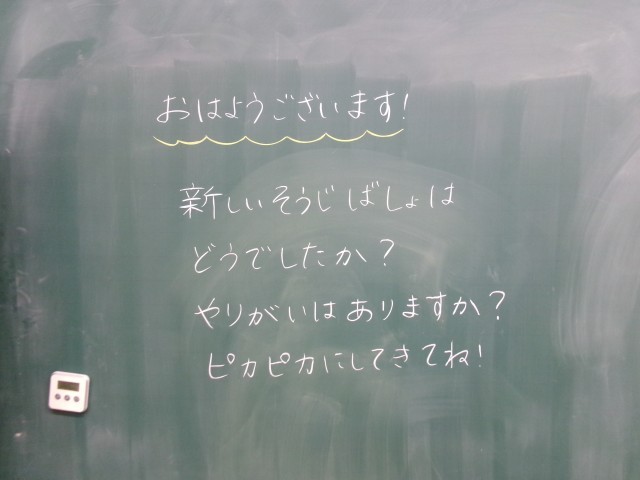 おはようございます!
新しいそうじばしょは
どうでしたか?
やりがいはありますか?
ピカピカにしてきてね!